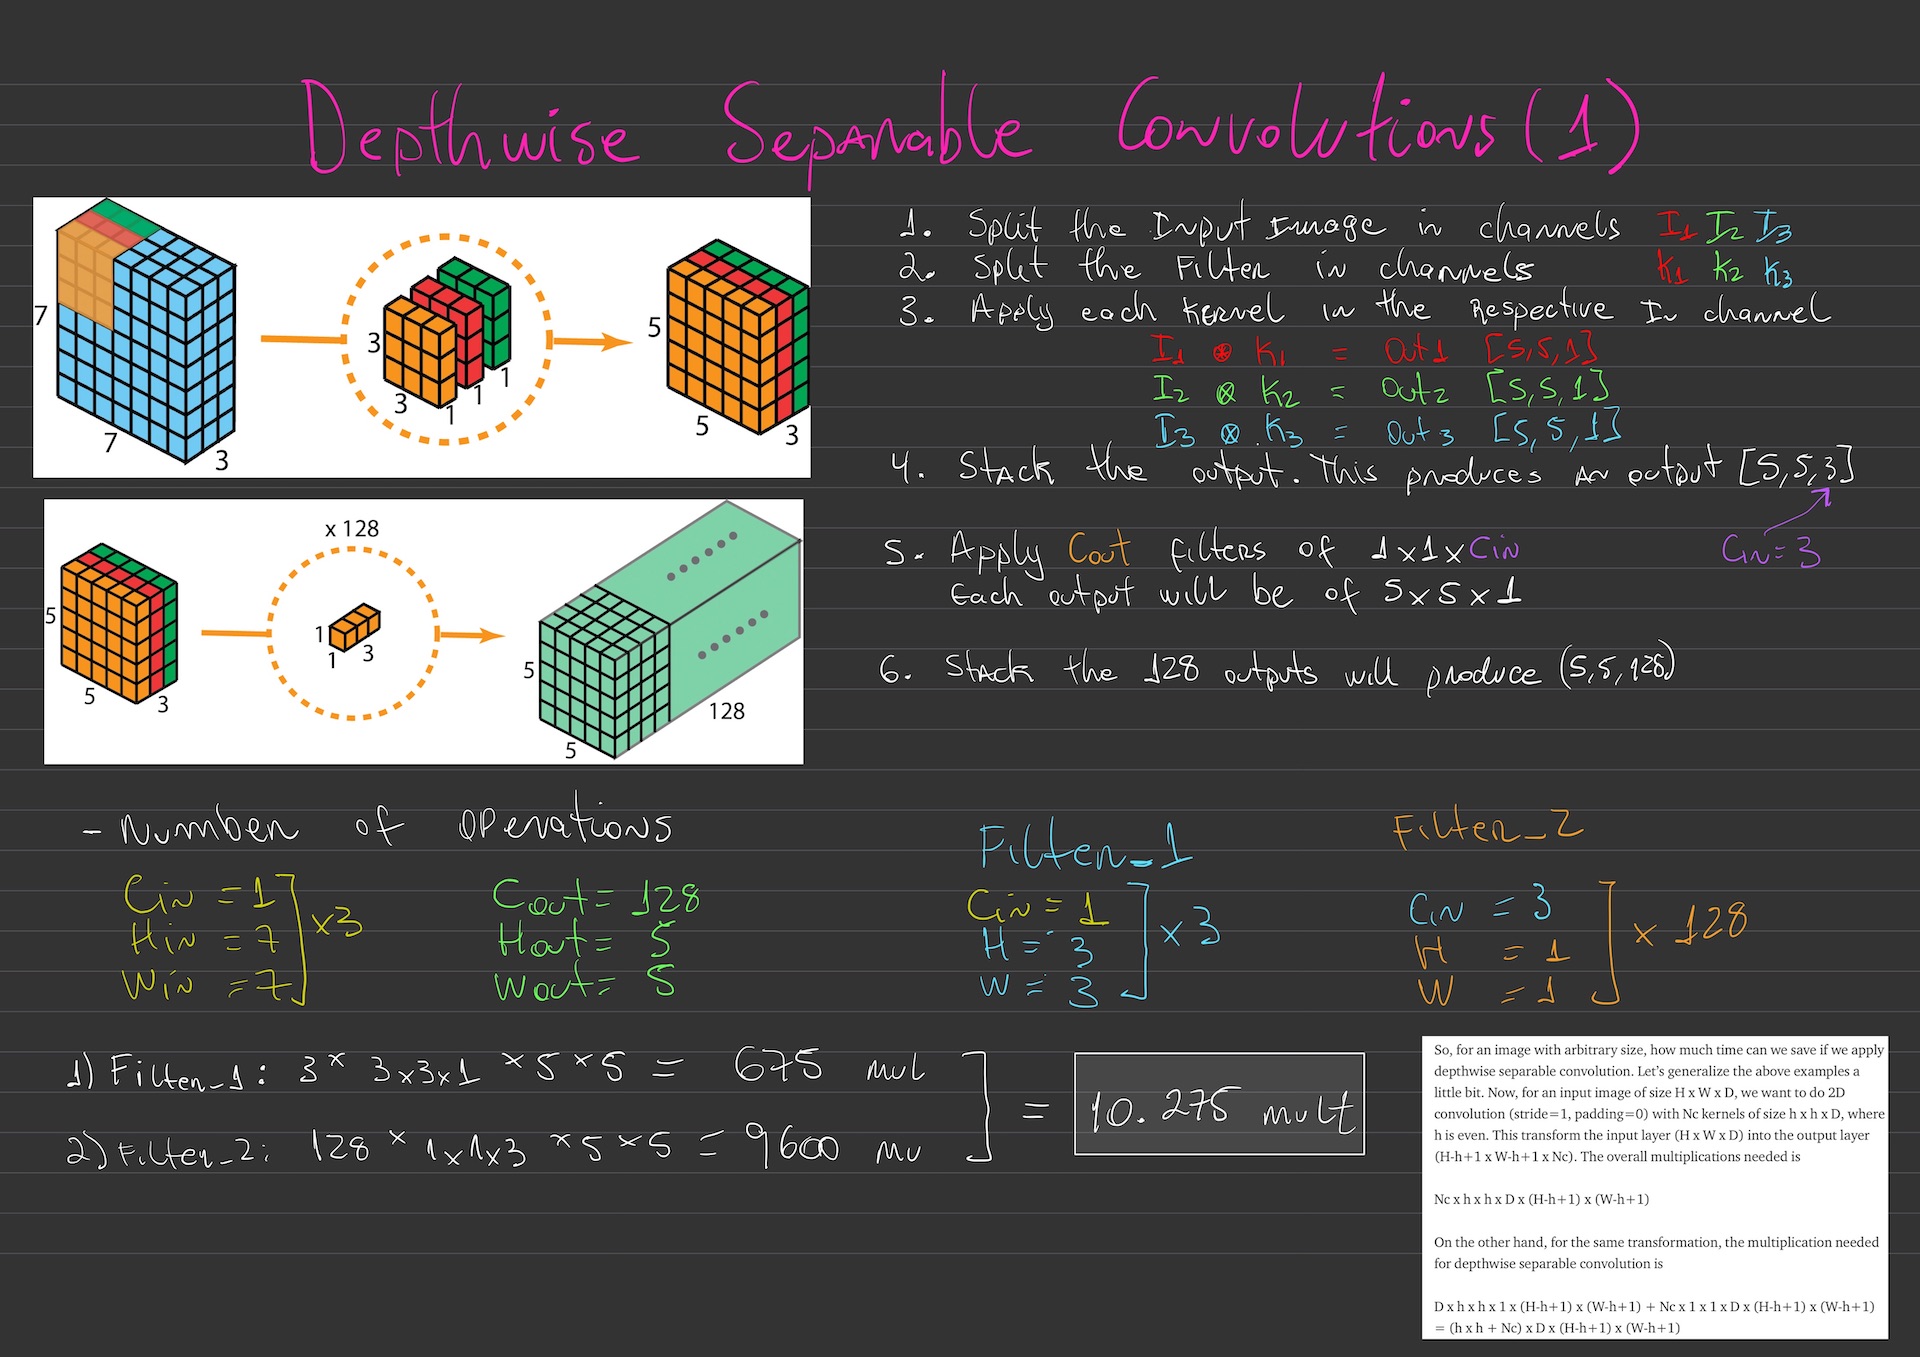 Depthwise Separable Convolutions (1)
7
7
3
3
3
1
1
1
5
5
3
1. Split the Input Image in channels I1 I2 I3
2. Split the Filter in channels K1 K2 K3
3. Apply each kernel in the Respective In channel
I1 ⊗ K1 = Out1 [5,5,1]
I2 ⊗ K2 = Out2 [5,5,1]
I3 ⊗ K3 = Out3 [5,5,1]
4. Stack the output. This produces an output [5,5,3]
Cin=3
5. Apply Cout filters of 1x1xCin
Each output will be of 5x5x1
6. Stack the 128 outputs will produce (5,5,128)
x 128
5
5
3
1
1
3
5
5
128
- Number of operations
Cin = 1
Hin = 7
Win = 7
x3
Cout = 128
Hout = 5
Wout = 5
Filter_1
Cin = 1
H = 3
W = 3
x 3
Filter_2
Cin = 3
H = 1
W = 1
x 128
1) Filter_1: 3 x 3x3x1 x 5 x 5 = 675 mul
2) Filter_2: 128 x 1x1x3 x 5 x 5 = 9600 mu
= 10.275 mult
So, for an image with arbitrary size, how much time can we save if we apply
depthwise separable convolution. Let's generalize the above examples a
little bit. Now, for an input image of size H x W x D, we want to do 2D
convolution (stride=1, padding=0) with Nc kernels of size h x h x D, where
h is even. This transform the input layer (H x W x D) into the output layer
(H-h+1 x W-h+1 x Nc). The overall multiplications needed is
Nc x h x h x D x (H-h+1) x (W-h+1)
On the other hand, for the same transformation, the multiplication needed
for depthwise separable convolution is
D x h x h x 1 x (H-h+1) x (W-h+1) + Nc x 1 x 1 x D x (H-h+1) x (W-h+1)
= (h x h + Nc) x D x (H-h+1) x (W-h+1)